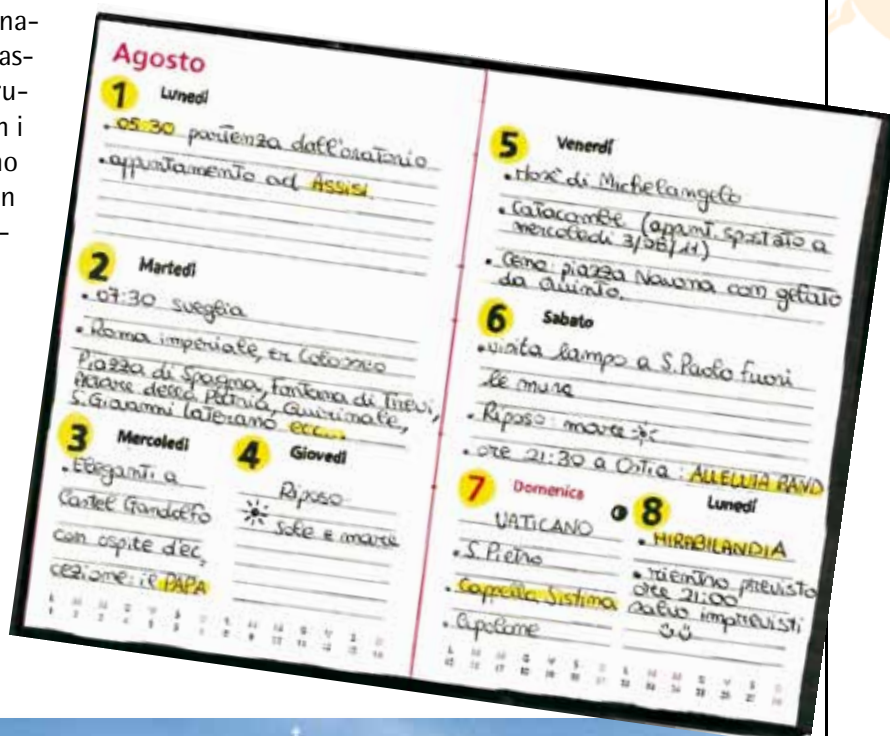 na-
as-
ru-
n i
no
n
-
Agosto
1 Lunedì
• 05:30 partenza dall'oratorio
• appuntamento ad Assisi
2 Martedì
• 07:30 sveglia
• Roma imperiale, er Colosseo
Piazza di Spagna, fontana di Trevi,
Altare della Patria, Quirinale,
S. Giovanni Laterano ecc...
3 Mercoledì
• Eleganti a
Castel Gandolfo
con ospite d'ec,
cezione: il PAPA
4 Giovedì
Riposo
Sole e mare
5 Venerdì
• Mosè di Michelangelo
• Catacombe (appunt. spostato a
mercoledì 3/08/11)
• Cena: piazza Navona con gelato
da Quinto.
6 Sabato
• visita lampo a S. Paolo fuori
le mura
• Riposo: mare
• ore 21:30 a Ostia: ALLELUIA BAND
7 Domenica
VATICANO
• S. Pietro
• Cappella Sistina
• Cupolone
8 Lunedì
• MIRABILANDIA
• rientro previsto
ore 21:00
salvo imprevisti